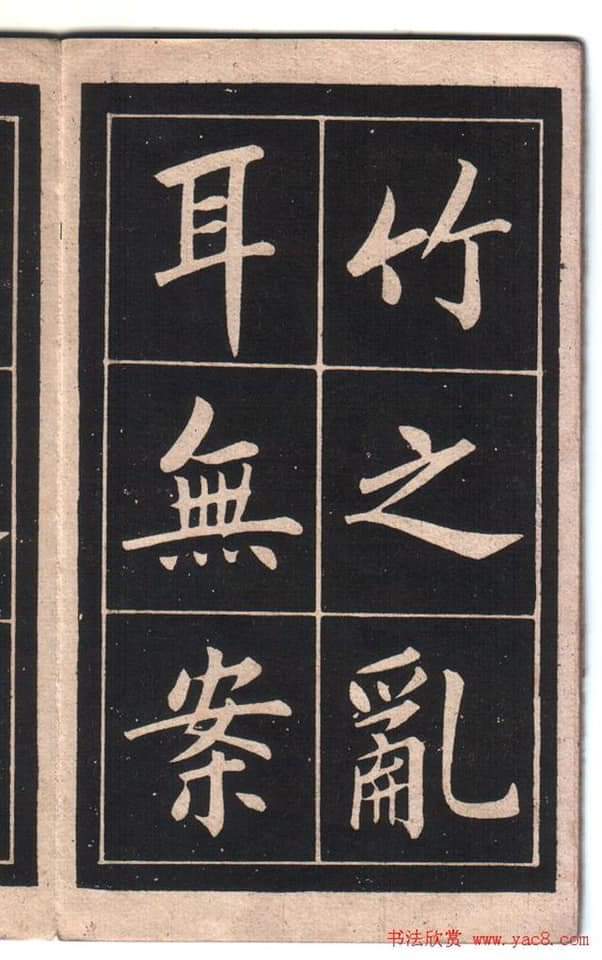 竹之亂
耳無案
书法欣赏 www.yac8.com